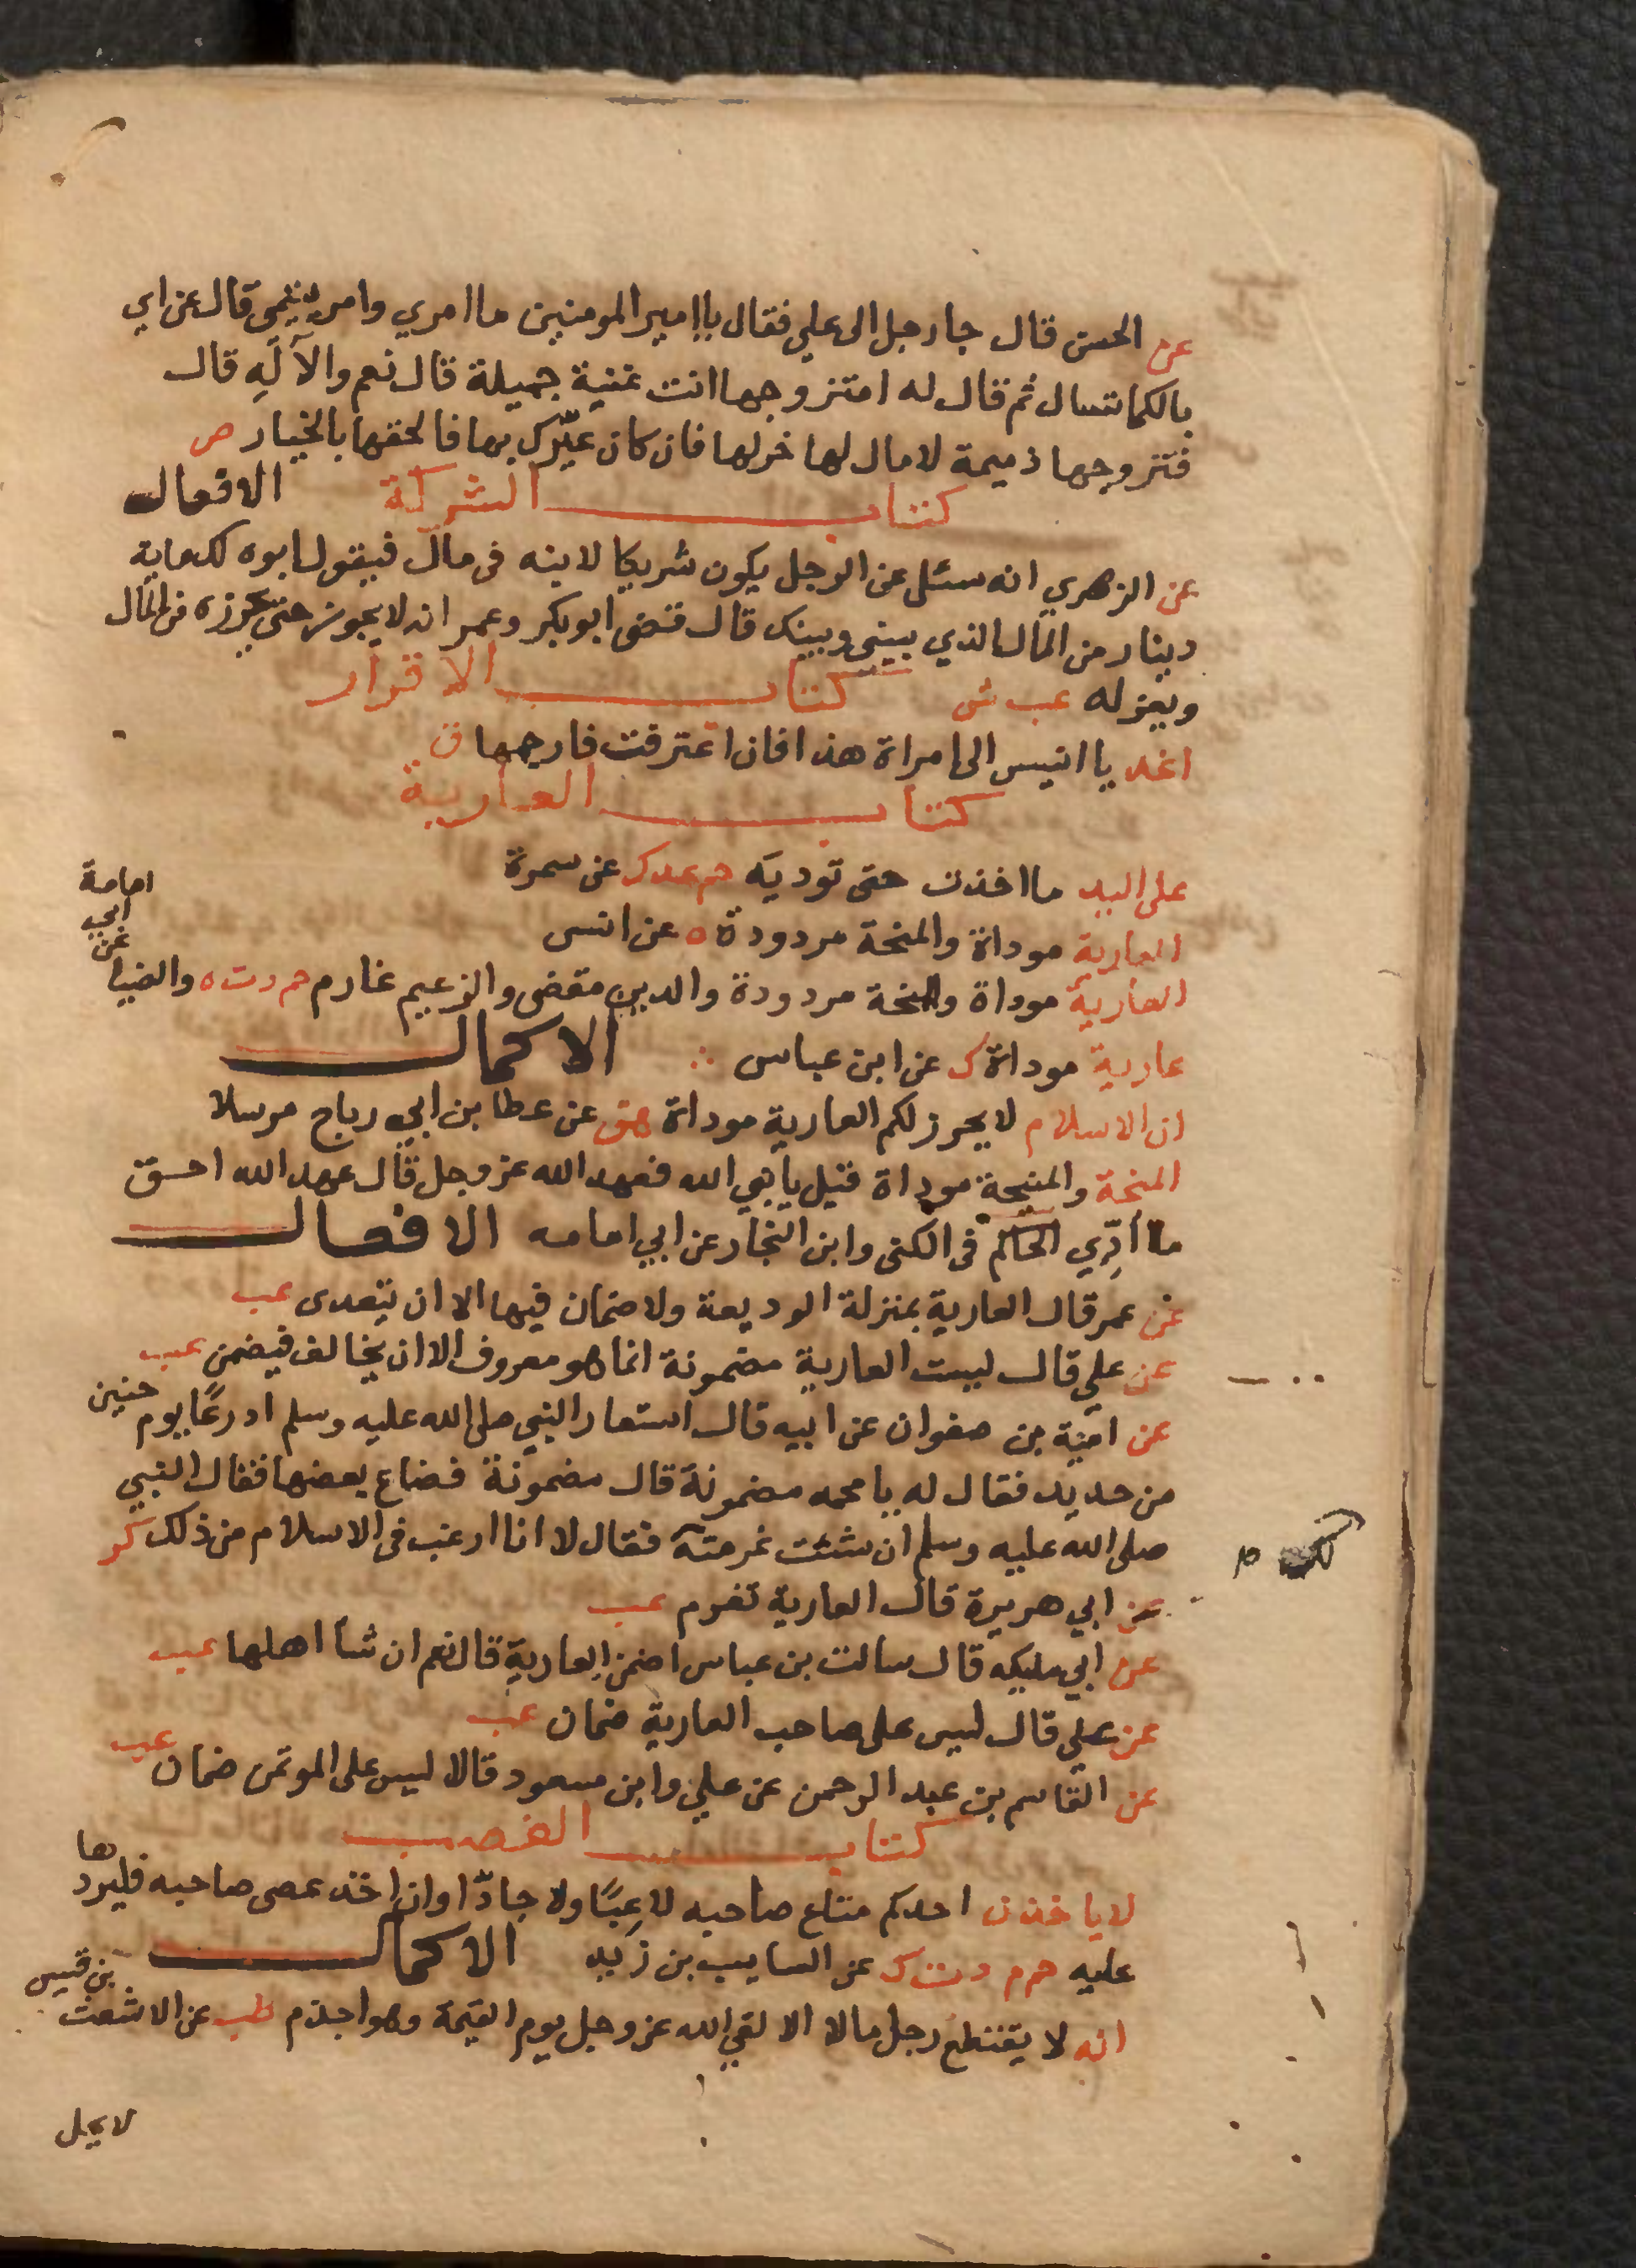 عن الحسن قال جا رجل الى علي فقال يا امير المومنين ما امري وامر يتيمي قال عن اي
بالكما تسال ثم قال له امتزوجها انت غنية جميلة قال نعم والاله قال
فتزوجها ذميمة لا مال لها خر لها فان كان غيرك بها فالحقها بالخيار ص
كتاب الشركة الافعال
عن الزهري انه سئل عن الرجل يكون شريكا لابنه في مال فيقول ابوه لك ماية
دينار من المال الذي بيني وبينك قال قضى ابوبكر وعمر انه لا يجوز حتى يحوزه من المال
ويعزله عب ش كتاب الاقرار
اغد يا انيس الى امراة هذا فان اعترفت فارجمها ق
كتاب العارية
على اليد ما اخذت حتى توديه حم عد ك عن سمرة
العارية موداة والمنحة مردودة ه عن انس
العارية موداة والمنحة مردودة والدين مقضى والزعيم غارم حم د ت ه والضيا عن ابي امامة
عارية موداة ك عن ابن عباس الاكمال
ان الاسلام لا يحرز لكم العارية موداة هق عن عطا بن ابي رباح مرسلا
المنحة والمنيحة موداة قيل يا نبي الله فعهد الله عز وجل قال عهد الله احق
ما أدي الحاكم في الكنى وابن النجار عن ابي امامه الافعال
عن عمر قال العارية بمنزلة الوديعة ولا ضمان فيها الا ان يتعدى عب
عن علي قال ليست العارية مضمونة انما هو معروف الا ان يخالف فيضمن عب
عن امية بن صفوان عن ابيه قال استعار النبي صلى الله عليه وسلم ادرعًا يوم حنين
من حديد فقال له يا محمد مضمونة قال مضمونة فضاع بعضها فقال النبي
صلى الله عليه وسلم ان شئت غرمته فقال لا انا ارغب في الاسلام من ذلك كر
عن ابي هريرة قال العارية تغرم عب
عن ابي مليكه قال سالت بن عباس اضمن العارية قال نعم ان شا اهلها عب
عن علي قال ليس على صاحب العارية ضمان عب
عن القاسم بن عبد الرحمن عن علي وابن مسعود قالا ليس على الموتمن ضمان عب
كتاب الغصب
لا ياخذن احدكم متاع صاحبه لا عبًا ولا جادّا وان اخذ عصى صاحبه فليردها
عليه حم م د ت ك عن السايب بن زيد الاكمال
انه لا يقتطع رجل مالا الا لقي الله عز وجل يوم القيمة وهو اجذم طب عن الاشعث بن قيس
لا يحل